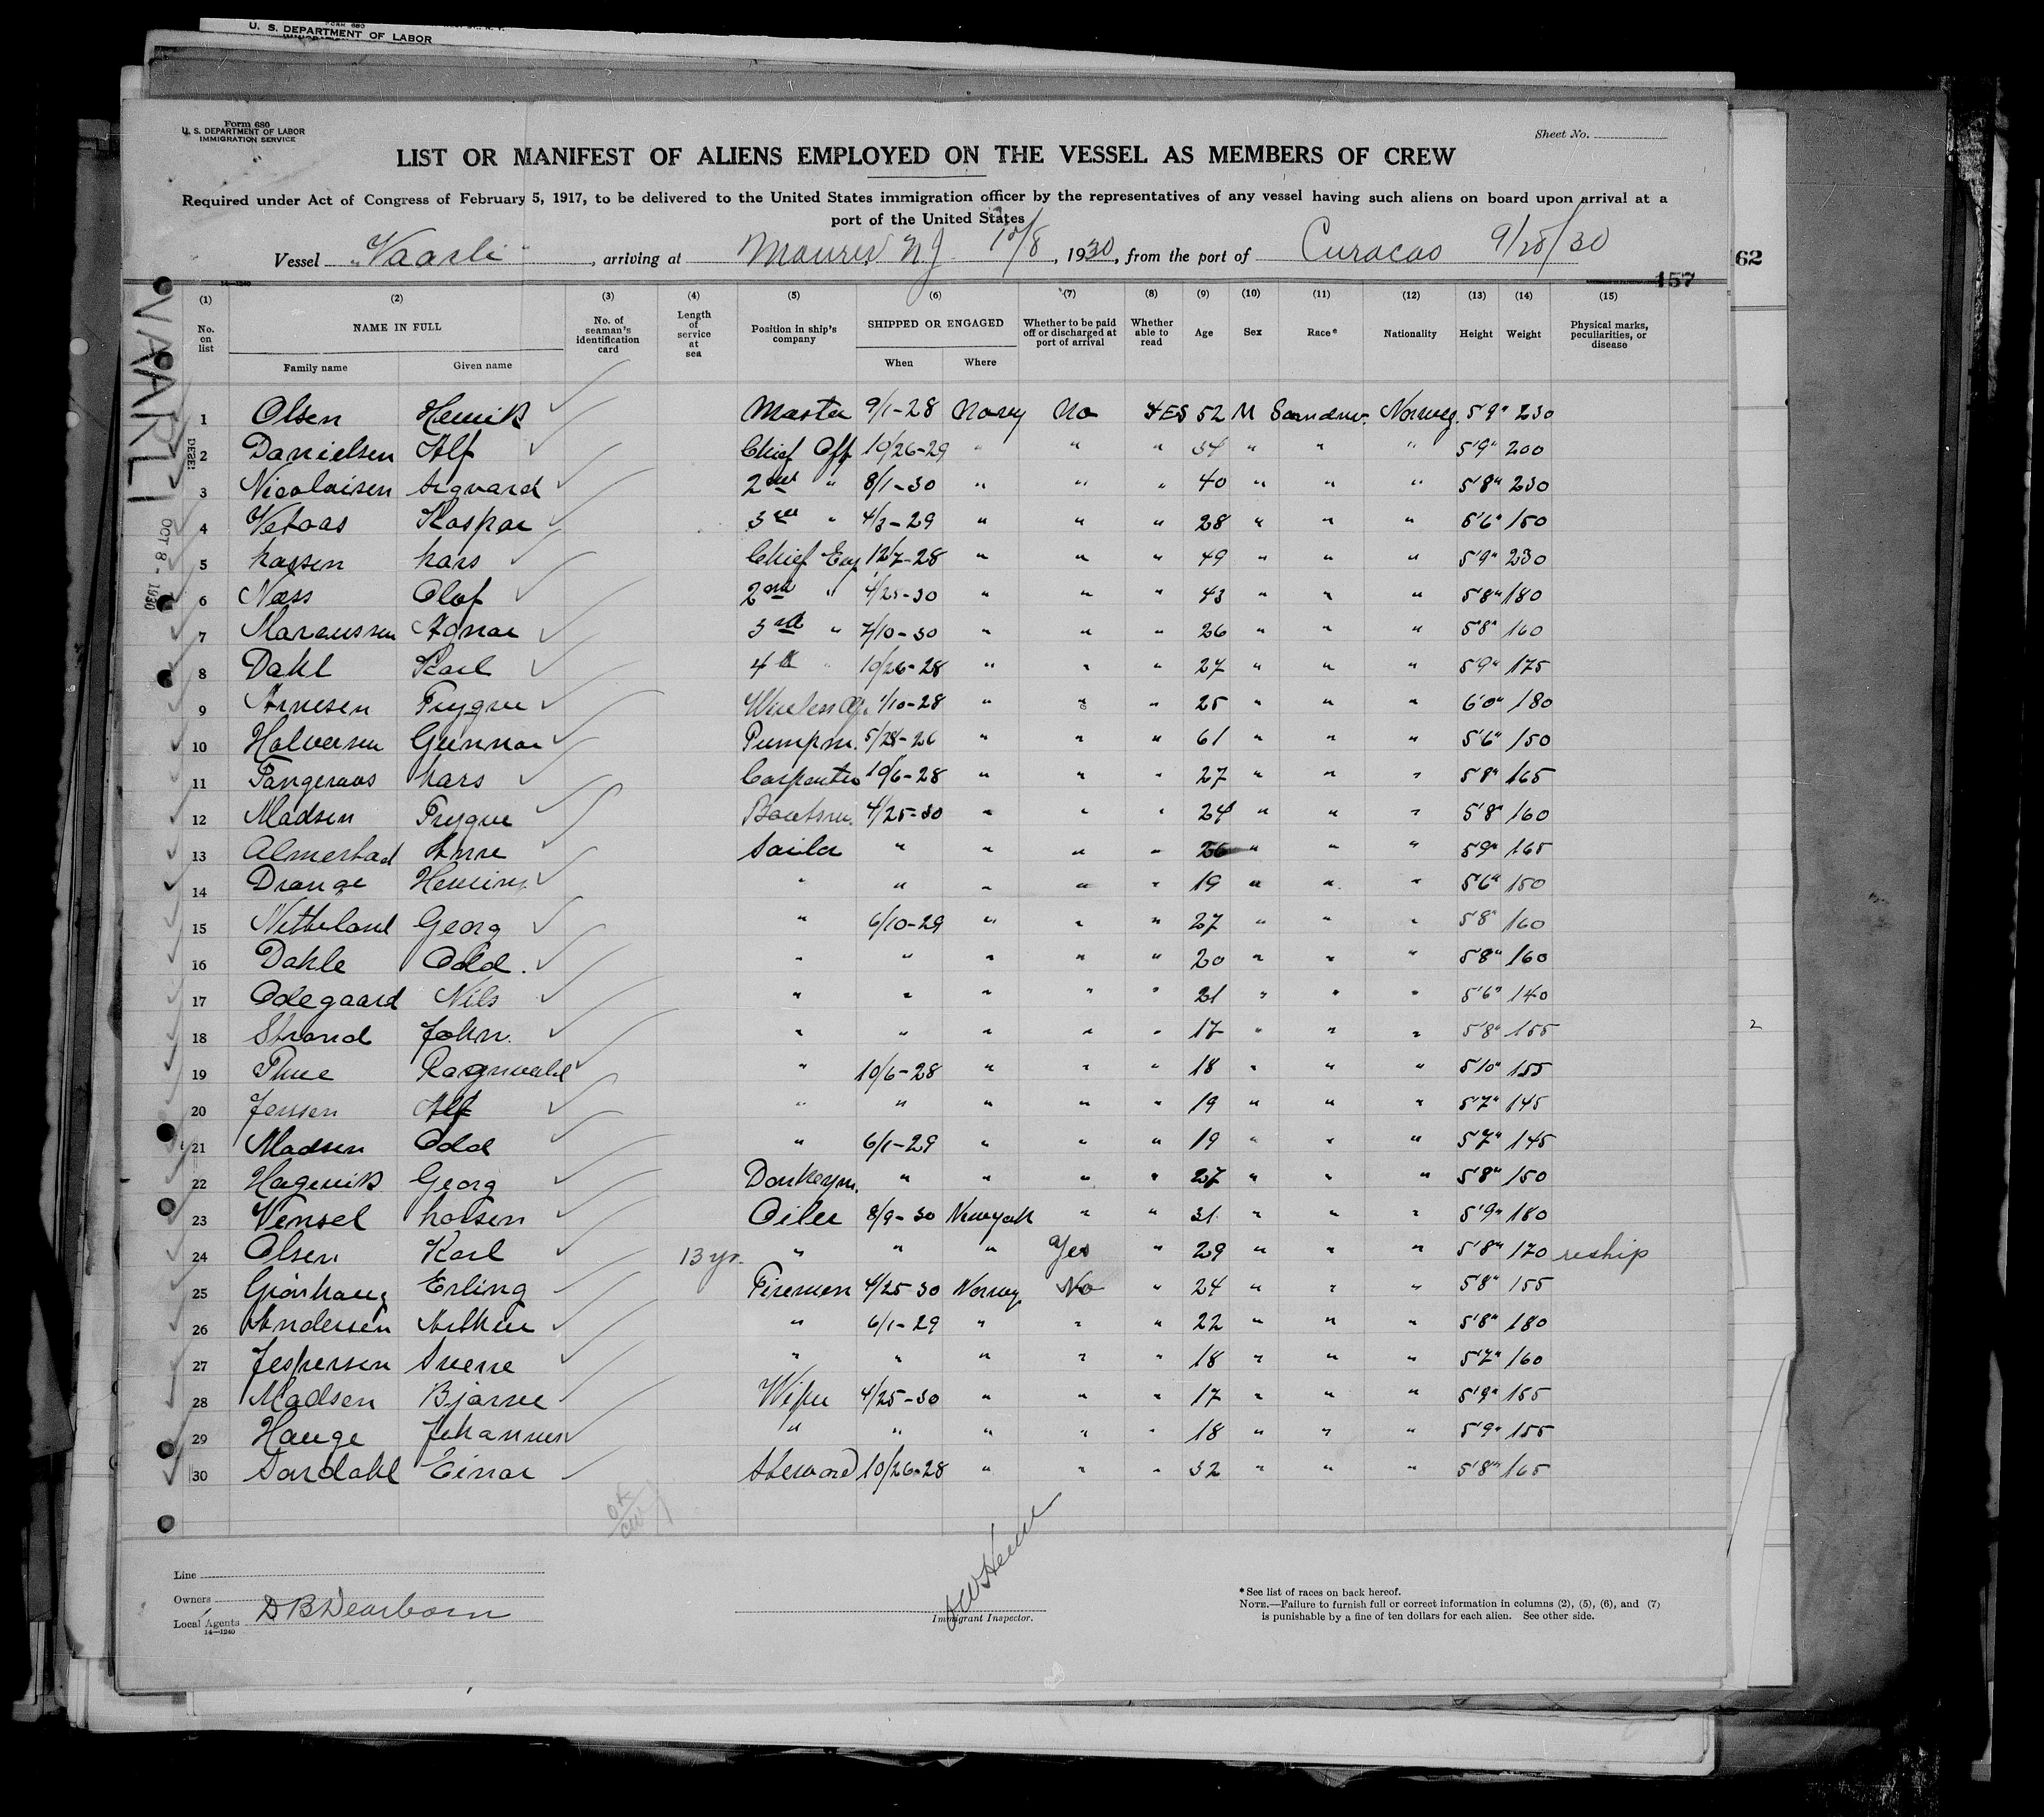 FORM 680
U. S. DEPARTMENT OF LABOR
Form 680
U. S. DEPARTMENT OF LABOR
IMMIGRATION SERVICE
Sheet No.
LIST OR MANIFEST OF ALIENS EMPLOYED ON THE VESSEL AS MEMBERS OF CREW
Required under Act of Congress of February 5, 1917, to be delivered to the United States immigration officer by the representatives of any vessel having such aliens on board upon arrival at a
port of the United States
Vessel "Vaarli", arriving at Maurer N.J. 10/8, 1930, from the port of Curacao 9/28/30
62
157
14—1240
VAARLI
OCT 8 - 1930
(1) (2) (3) (4) (5) (6) (7) (8) (9) (10) (11) (12) (13) (14) (15)
No. on list NAME IN FULL No. of seaman's identification card Length of service at sea Position in ship's company SHIPPED OR ENGAGED Whether to be paid off or discharged at port of arrival Whether able to read Age Sex Race* Nationality Height Weight Physical marks, peculiarities, or disease
Family name Given name When Where
1 Olsen Henrik Master 9/1-28 Norw No YES 52 M Scandnv. Norweg. 5'9" 230
2 Danielsen Alf Chief Off 10/26-29 " " " 34 " " " 5'9" 200
3 Nicolaisen Sigvard 2nd " 8/1-30 " " " 40 " " " 5'8" 230
4 Vetaas Kaspar 3rd " 4/3-29 " " " 28 " " " 5'6" 150
5 Lassen Lars Chief Eng 12/7-28 " " " 49 " " " 5'9" 230
6 Næss Olof 2nd " 4/25-30 " " " 43 " " " 5'8" 180
7 Marcussen Agnar 3rd " 7/10-30 " " " 26 " " " 5'8" 160
8 Dahl Karl 4th " 10/26-28 " " " 27 " " " 5'9" 175
9 Arnesen Trygve Wireless Op. 1/10-28 " " " 25 " " " 6'0" 180
10 Halversen Gunnar Pumpm. 5/28-26 " " " 61 " " " 5'6" 150
11 Tangeraas Lars Carpenter 10/6-28 " " " 27 " " " 5'8" 165
12 Madsen Trygve Boatsm. 4/25-30 " " " 24 " " " 5'8" 160
13 Almestad Arne Sailor " " " " 26 " " " 5'9" 165
14 Drange Henning " " " " " 19 " " " 5'6" 150
15 Netteland Georg " 6/10-29 " " " 27 " " " 5'8" 160
16 Dahle Odd. " " " " " 20 " " " 5'8" 160
17 Odegaard Nils " " " " " 21 " " " 5'6" 140
18 Strand John. " " " " " 17 " " " 5'8" 155
19 Thue Ragnvald " 10/6-28 " " " 18 " " " 5'10" 155
20 Jensen Alf " " " " " 19 " " " 5'7" 145
21 Madsen Odd " 6/1-29 " " " 19 " " " 5'7" 145
22 Hagenik Georg Donkeym. " " " " 27 " " " 5'8" 150
23 Vensel Larsen Oiler 8/9-30 Newyork " " 31 " " " 5'9" 180
24 Olsen Karl 13 yr. " " " Yes " 29 " " " 5'8" 170 reship
25 Gjørhaug Erling Firemen 4/25-30 Norway No " 24 " " " 5'8" 155
26 Andersen Arthur " 6/1-29 " " " 22 " " " 5'8" 180
27 Jespersen Sverre " " " " " 18 " " " 5'7" 160
28 Madsen Bjarne Wiper 4/25-30 " " " 17 " " " 5'9" 155
29 Hauge Johannes " " " " " 18 " " " 5'9" 155
30 Sordahl Einar Steward 10/26-28 " " " 32 " " " 5'8" 165
2
Line
Owners
Local Agents D B Dearborn
14—1240
Immigrant Inspector.
*See list of races on back hereof.
NOTE.—Failure to furnish full or correct information in columns (2), (5), (6), and (7)
is punishable by a fine of ten dollars for each alien. See other side.